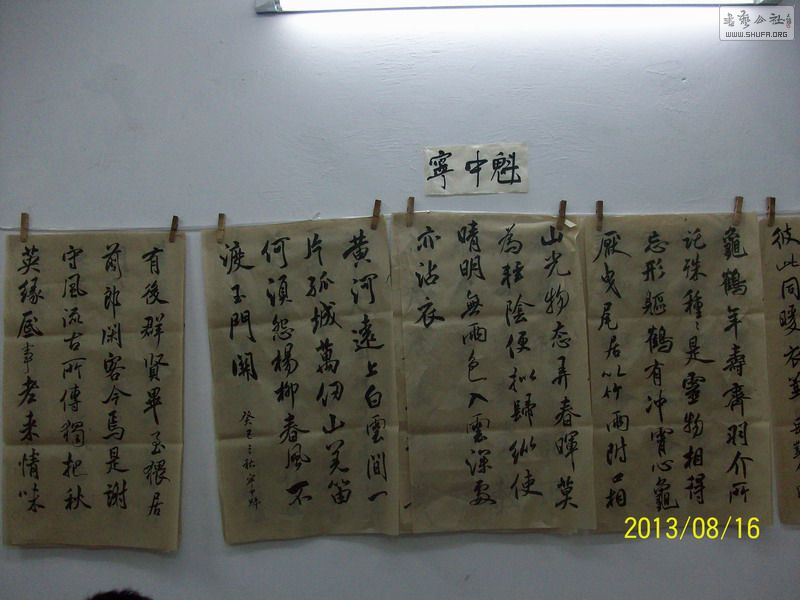 書藝公社
WWW.SHUFA.ORG
寧中魁
彼此同暖衣
龜鶴年壽齊羽介所
託殊種〻是靈物相得
忘形軀鶴有冲霄心龜
厭曳尾居以竹兩附口相
山光物态弄春暉莫
為輕陰便拟歸縱使
晴明無雨色入雲深處
亦沾衣
黄河遠上白雲間一
片孤城萬仞山羌笛
何須怨楊柳春風不
渡玉門關
癸巳之秋寧中魁
有後群賢畢至猥居
前郎閑客今焉是謝
守風流古所傳獨把秋
英缘底事老来情味
2013/08/16